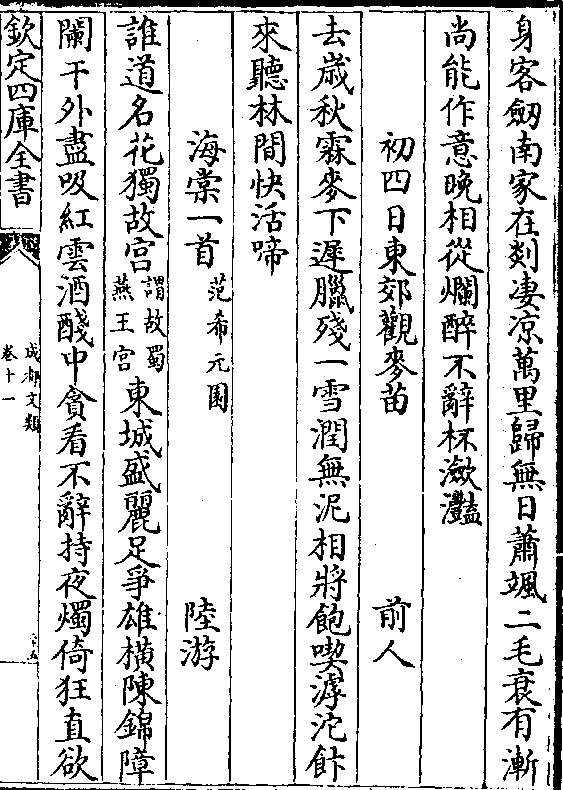 身客劒南家在剡凄凉萬里歸無日蕭颯二毛衰有漸
尚能作意晚相從爛醉不辭杯瀲灩
初四日東郊觀麥苗 前人
去歲秋霖麥下遲臘殘一雪潤無泥相將飽喫滹沱餅
來聽林間快活啼
海棠一首 范希元園 陸游
誰道名花獨故宫 謂故蜀燕王宫 東城盛麗足爭雄橫陳錦障
闌干外盡吸紅雲酒醆中貪看不辭持夜燭倚狂直欲
欽定四庫全書
成都文類
卷十一